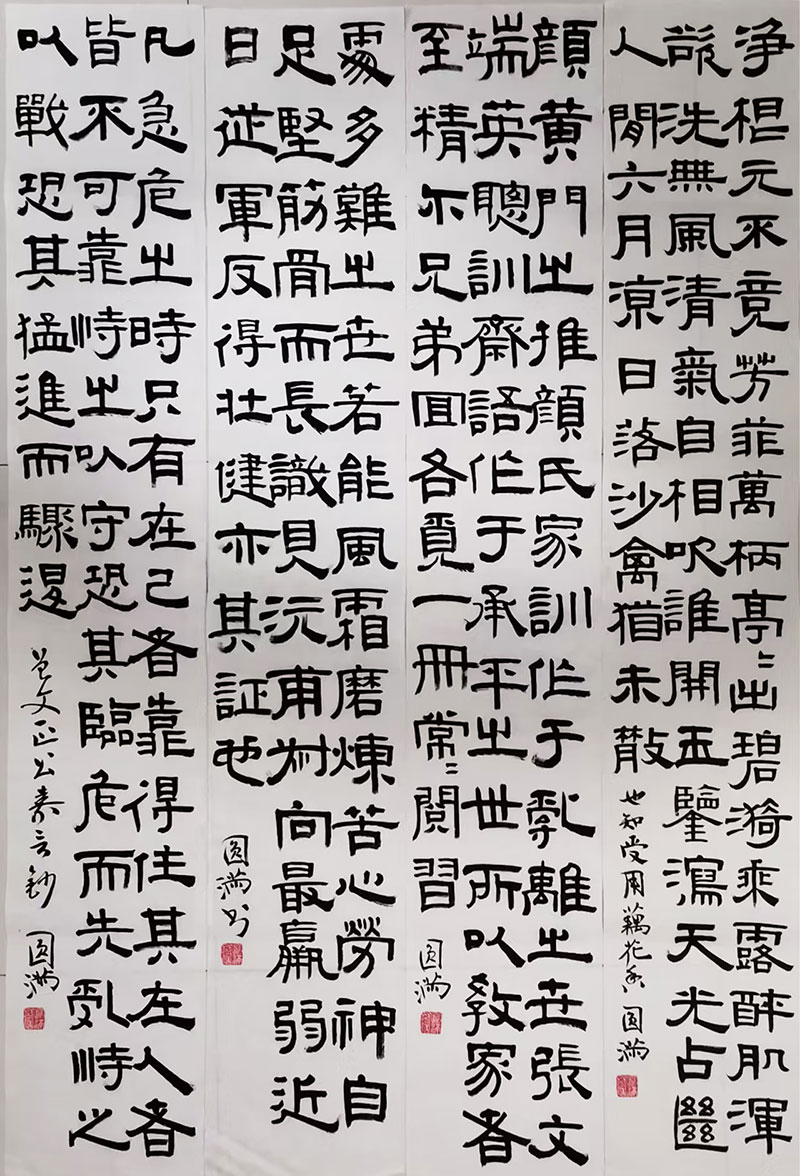 浄植元不竞芳菲萬柄亭〻出碧漪乘露醉肌渾
欲洗無風清氣自相吹誰開玉鑒瀉天光占斷
人間六月涼日落沙禽猶未散 也知受用藕花香 圓滿
顔黄門之推顔氏家訓作于亂離之世張文
端英聰訓齋語作于承平之世所以教家者
至精尔兄弟囬各覓一冊常〻閲習 圓滿
處多難之世若能風霜磨煉苦心勞神自
足堅筋骨而長識見沅甫叔向最羸弱近
日從軍反得壯健亦其証也 圓滿书
凡急危之時只有在己者靠得住其在人者
皆不可靠恃之以守恐其臨危而先亂恃之
以戰恐其猛進而驟退 曾文正公嘉言鈔 圓滿